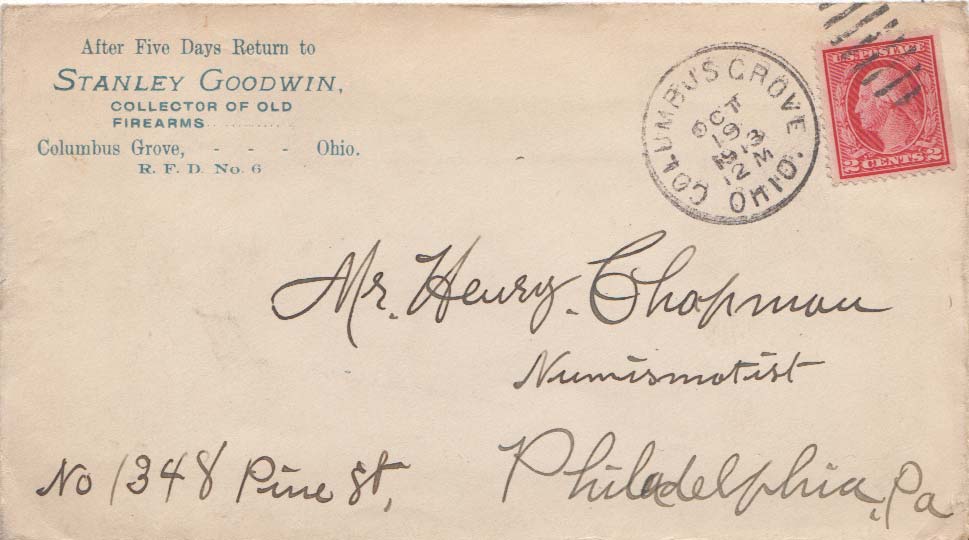 After Five Days Return to
STANLEY GOODWIN,
COLLECTOR OF OLD
FIREARMS
Columbus Grove, - - - Ohio.
R. F. D. No. 6
COLUMBUS GROVE
OCT
19
1913
12 M
OHIO.
U.S. POSTAGE
2 CENTS 2
Mr. Henry. Chapman
Numismotist
No 1348 Pine St,
Philadelphia, Pa